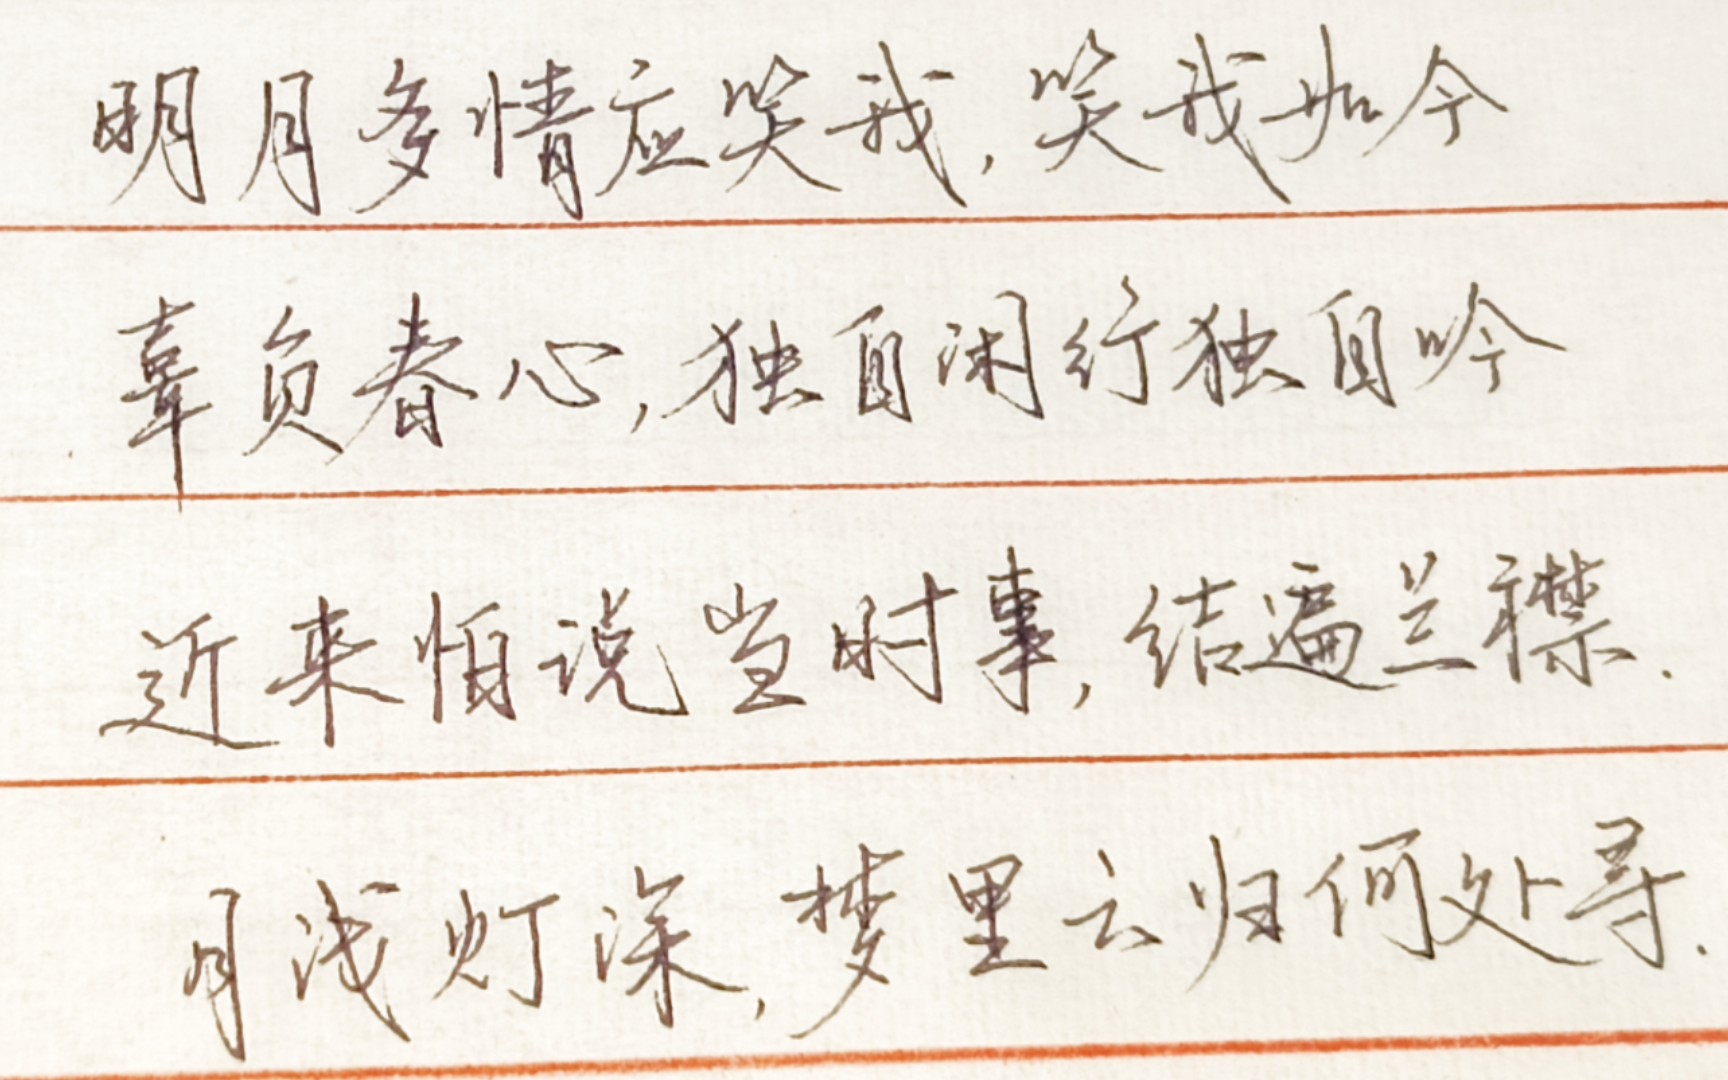 明月多情应笑我，笑我如今
辜负春心，独自闲行独自吟
近来怕说当时事，结遍兰襟.
月浅灯深，梦里云归何处寻.